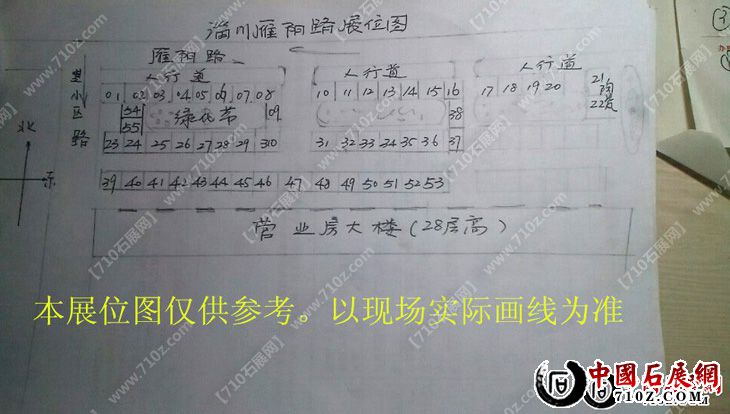 淄川雁阳路展位图
雁阳路
人行道 人行道 人行道
小区路
01 02 03 04 05 06 07 08 10 11 12 13 14 15 16 17 18 19 20 21 22
54 绿化带 09 38
55
23 24 25 26 27 28 29 30 31 32 33 34 35 36 37
北
东
39 40 41 42 43 44 45 46 47 48 49 50 51 52 53
营业房大楼(28层高)
本展位图仅供参考。以现场实际画线为准
中國石展網
710Z.COM
【710石展网】
www.710z.com